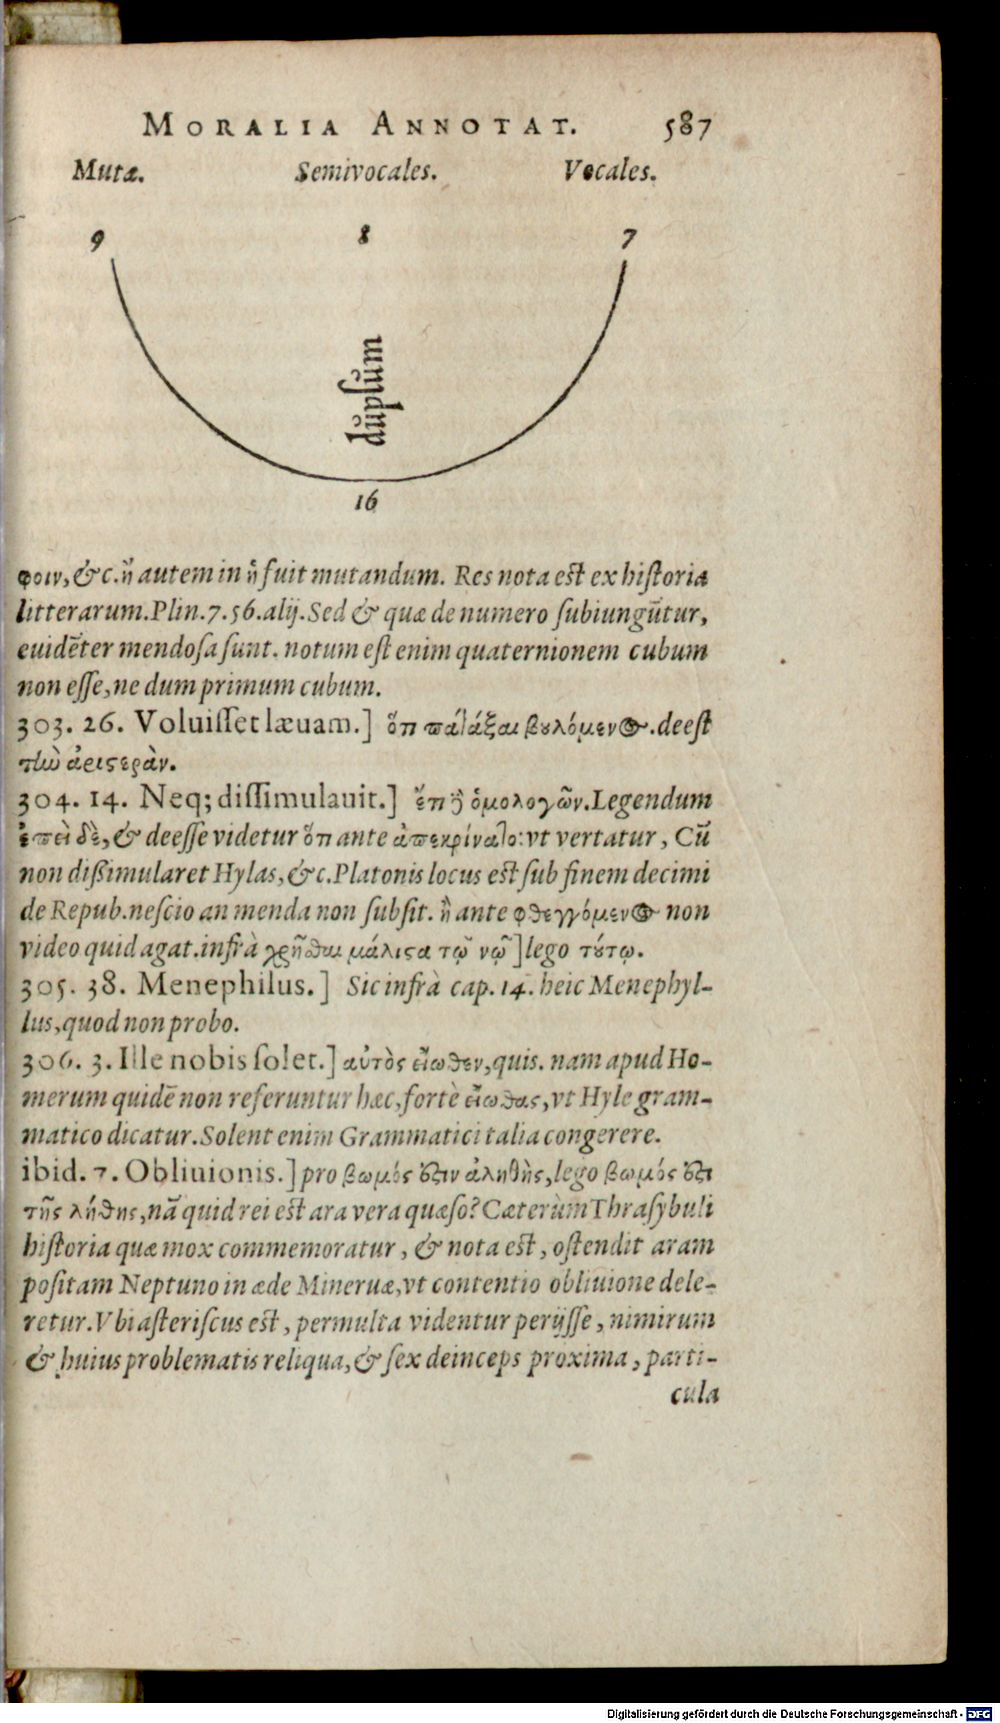 MORALIA ANNOTAT. 587
Mutæ. Semivocales. Vocales.
9 8 7
duplum
16
φοιν, &c. ἢ autem in ἡ fuit mutandum. Res nota est ex historia
litterarum. Plin. 7. 56. alij. Sed & quæ de numero subiungūtur,
euidēter mendosa sunt. notum est enim quaternionem cubum
non esse, ne dum primum cubum.
303. 26. Voluisset læuam.] ὅτι πατάξαι βουλόμενος. deest
τὴν ἀριστερὰν.
304. 14. Neq; dissimulauit.] ἔτι δὲ ὁμολογῶν. Legendum
ἐπεὶ δὲ, & deesse videtur ὅτι ante ἀπεκρίνατο: vt vertatur, Cū
non dissimularet Hylas, &c. Platonis locus est sub finem decimi
de Repub. nescio an menda non subsit. ἢ ante φθεγγόμενος non
video quid agat. infrà χρῆσθαι μάλιστα τῷ νῷ] lego τούτῳ.
305. 38. Menephilus.] Sic infrà cap. 14. heic Menephyl-
lus, quod non probo.
306. 3. Ille nobis solet.] αὐτὸς εἴωθεν, quis. nam apud Ho-
merum quidē non referuntur hæc, fortè εἴωθας, vt Hyle gram-
matico dicatur. Solent enim Grammatici talia congerere.
ibid. 7. Obliuionis.] pro βωμός ἐστιν ἀληθὴς, lego βωμός ἐστι
τῆς λήθης, nā quid rei est ara vera quæso? Cæterùm Thrasybuli
historia quæ mox commemoratur, & nota est, ostendit aram
positam Neptuno in æde Mineruæ, vt contentio obliuione dele-
retur. Vbi asteriscus est, permulta videntur perijsse, nimirum
& huius problematis reliqua, & sex deinceps proxima, parti-
cula
Digitalisierung gefördert durch die Deutsche Forschungsgemeinschaft - DFG